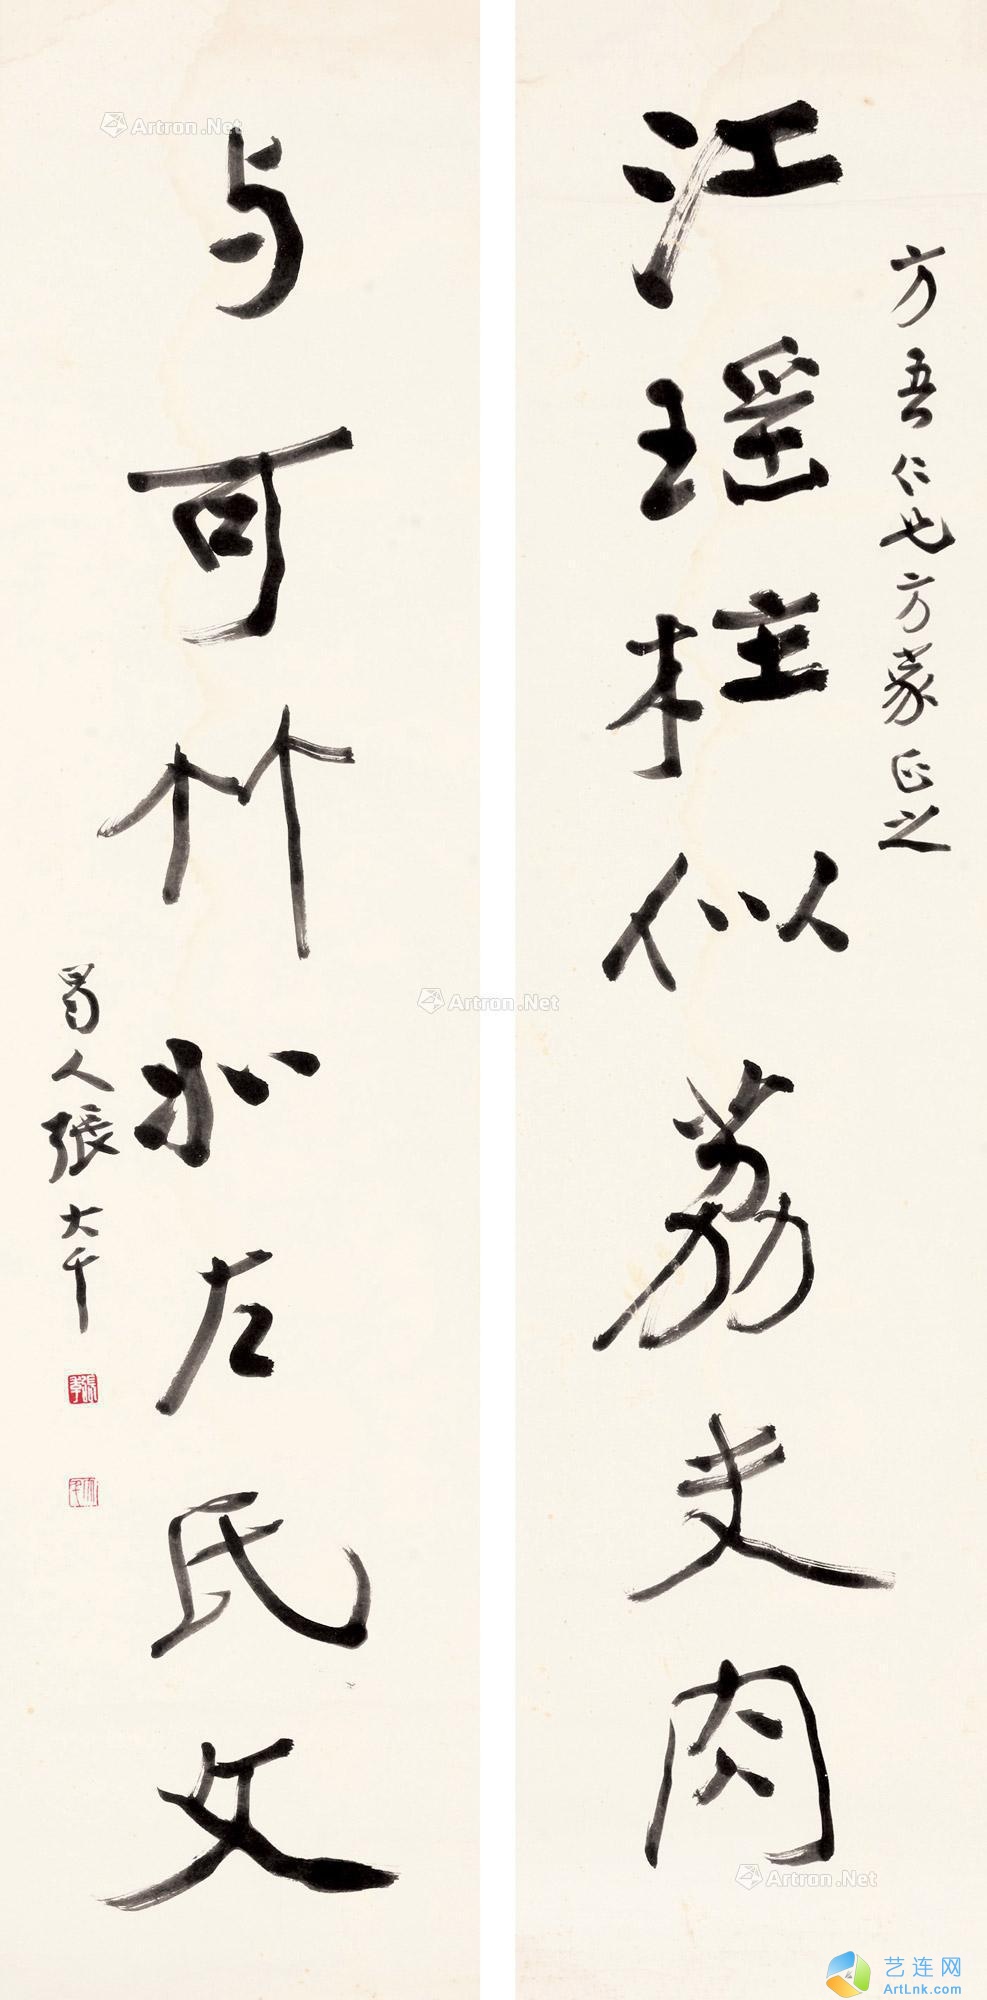 方吾仁兄方家正之
江瑶柱似荔支肉
与可竹左氏文
蜀人張大千
Artron.Net
Artron.Net
Artron.Net
Artron.Net
艺连网
ArtLnk.com